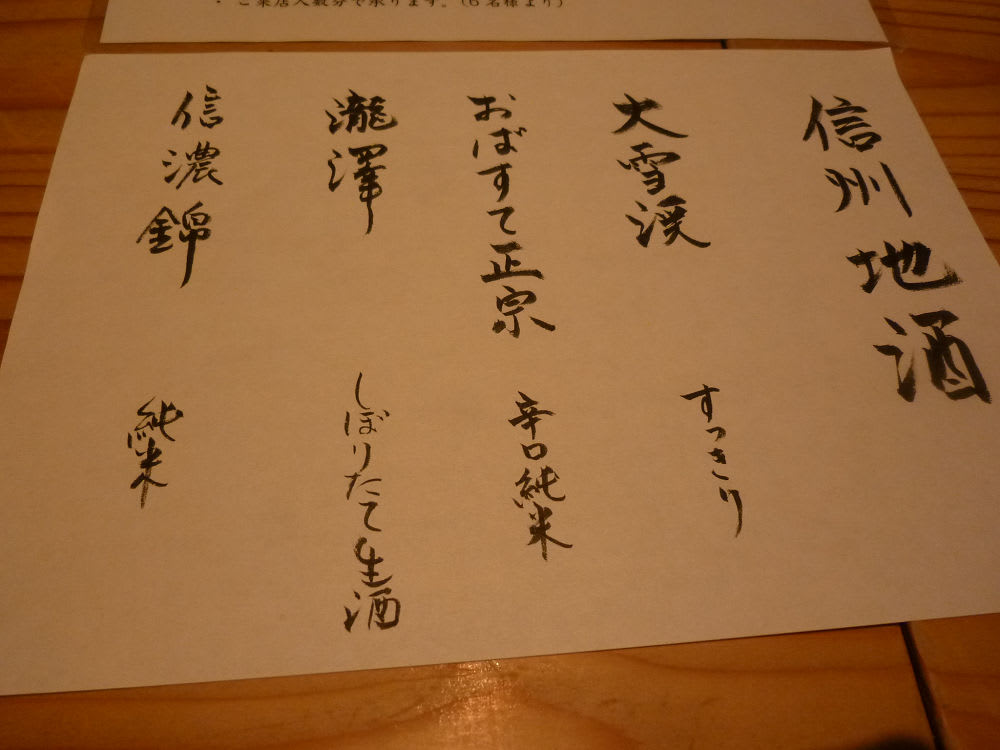 ・ご来店人数分で承ります。(6名様より)
信州地酒
大雪渓
すっきり
おばすて正宗
辛口純米
瀧澤
しぼりたて生酒
信濃錦
純米